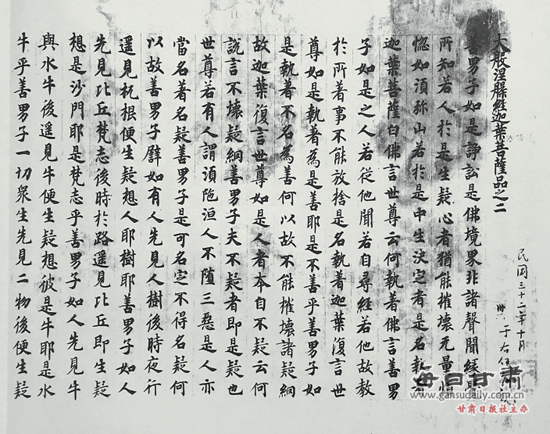 民国三十二年十月
于右任
大般涅槃經迦葉菩薩品之二
男子如是諍訟是佛境界非諸聲聞緣
所知若人於是生疑心者猶能摧壞无量煩
惱如須弥山若於是中生決定者是名執著
迦葉菩薩白佛言世尊云何執著佛言善男
子如是之人若從他聞若自尋經若他故教
於所著事不能放捨是名執著迦葉復言世
尊如是執著為是善耶是不善乎善男子如
是執著不名為善何以故不能摧壞諸疑網
故迦葉復言世尊如是人者本自不疑云何
説言不壞疑網善男子夫不疑者即是疑也
世尊若有人謂須陁洹人不墮三惡是人亦
當名著名疑善男子是可名定不得名疑何
以故善男子譬如有人先見人樹後時夜行
遥見杌根便生疑想人耶樹耶善男子如人
先見比丘梵志後時於路遥見比丘即生疑
想是沙門耶是梵志乎善男子如人先見牛
與水牛後遥見牛便生疑想彼是牛耶是水
牛乎善男子一切衆生先見二物後便生疑
每日甘肃
www.gansudaily.com.cn
甘肃日报社主办